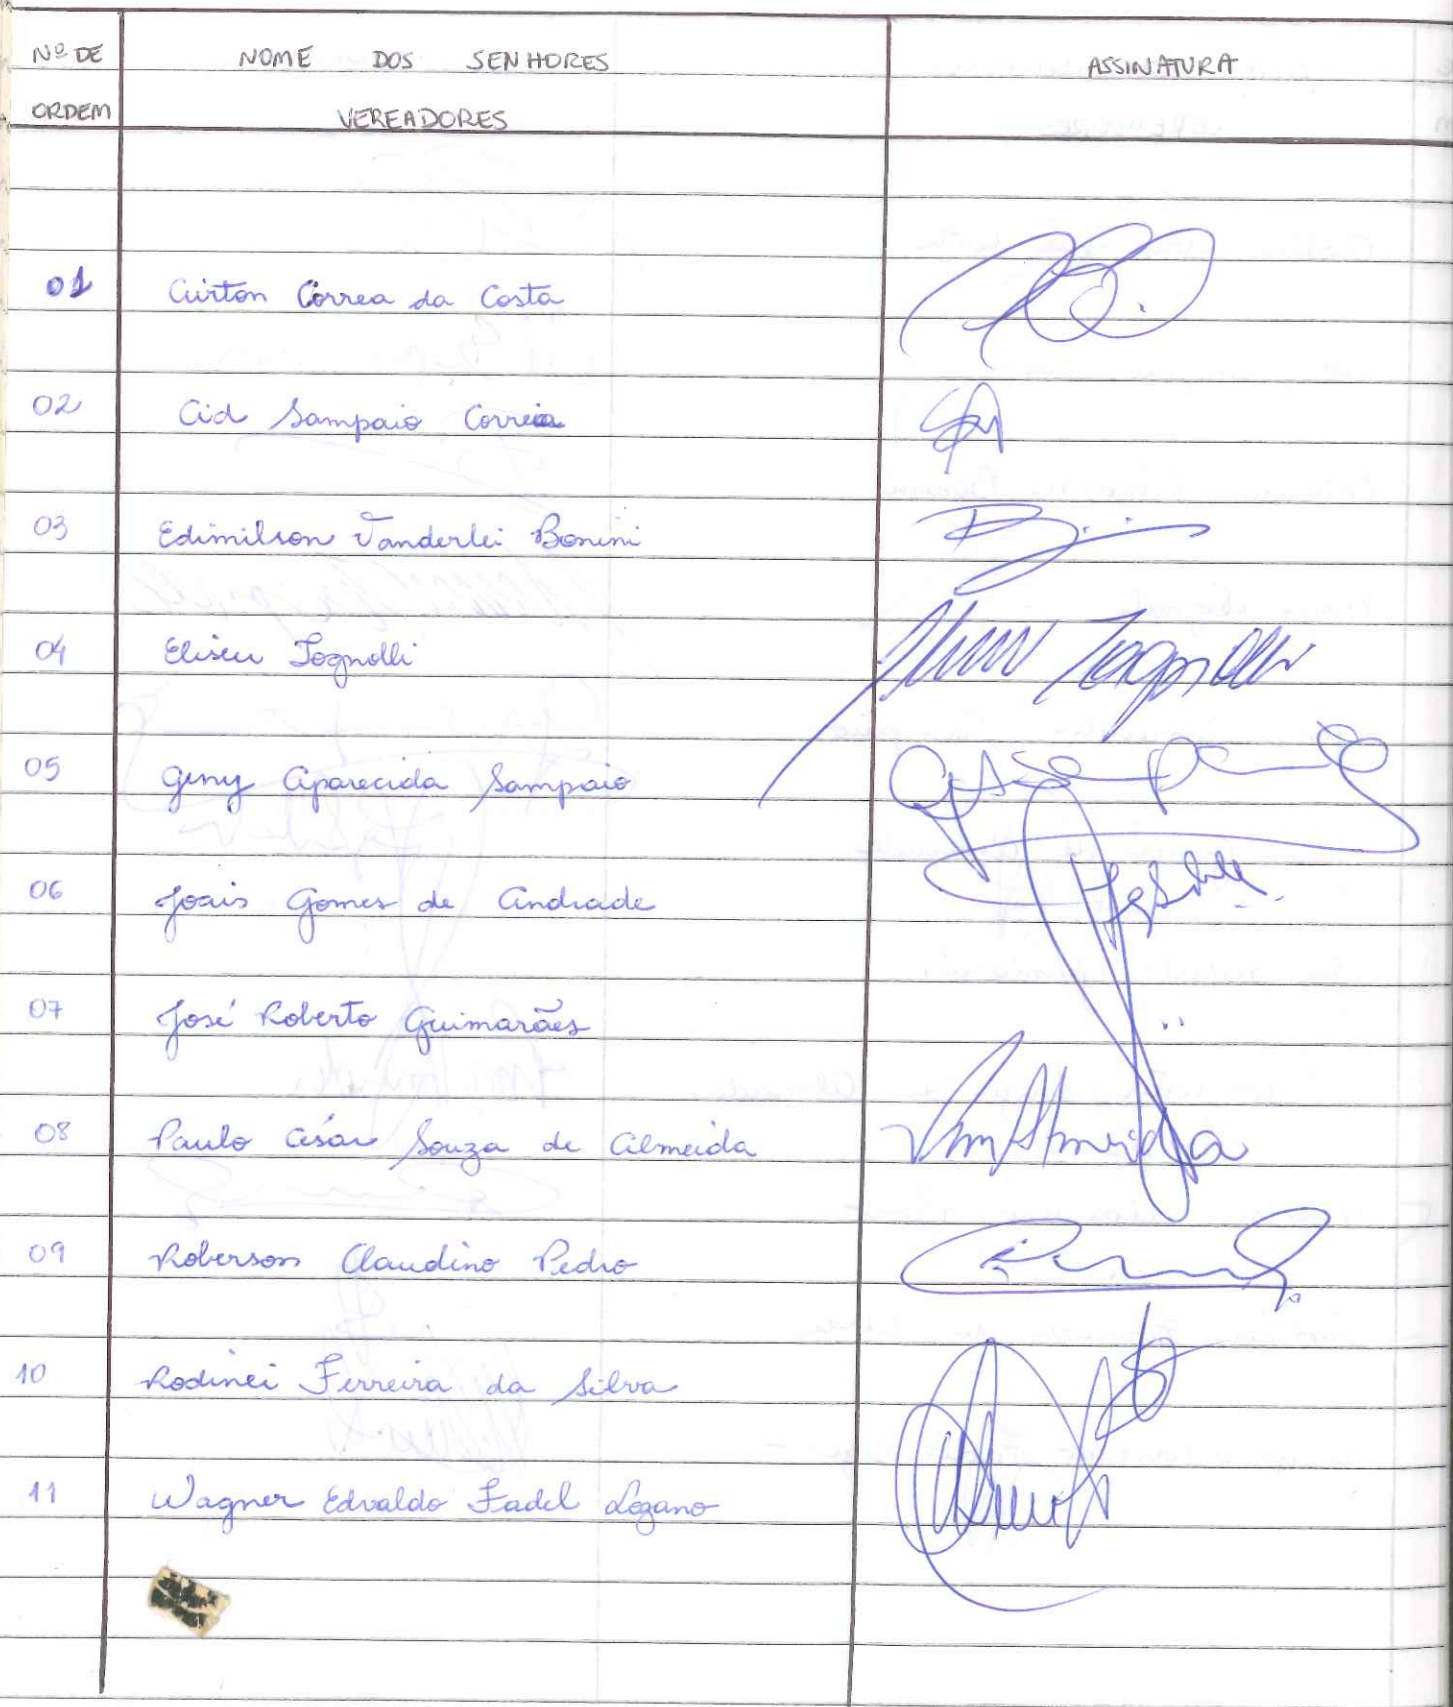 Nº DE NOME DOS SENHORES ASSINATURA
ORDEM VEREADORES
01 Airton Correa da Costa
02 Cid Sampaio Correia
03 Edimilson Vanderlei Bonini
04 Eliseu Tognolli Tognolli
05 Geny Aparecida Sampaio
06 Joais Gomes de Andrade
07 José Roberto Guimarães
08 Paulo César Souza de Almeida Almeida
09 Roberson Claudino Pedro
10 Rodinei Ferreira da Silva
11 Wagner Edvaldo Fadel Lozano